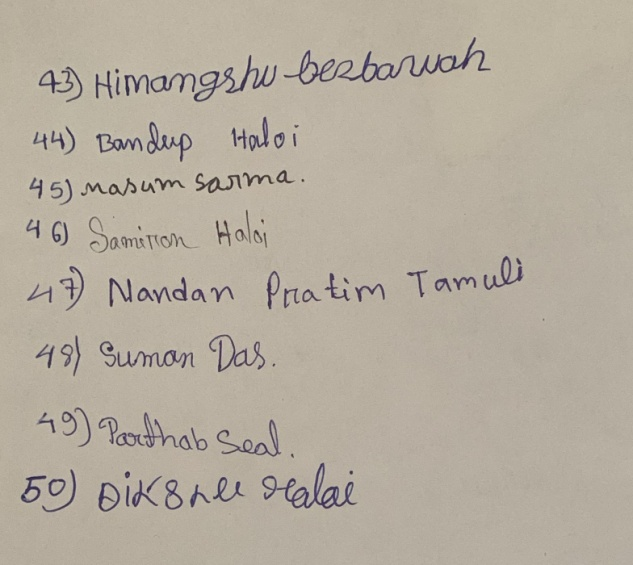 43) Himangshu bezbaruah
44) Bandup Haloi
45) Masum sarma.
46) Samiron Haloi
47) Nandan Pratim Tamuli
48) Suman Das.
49) Parthab Seal.
50) Dikshu Halai